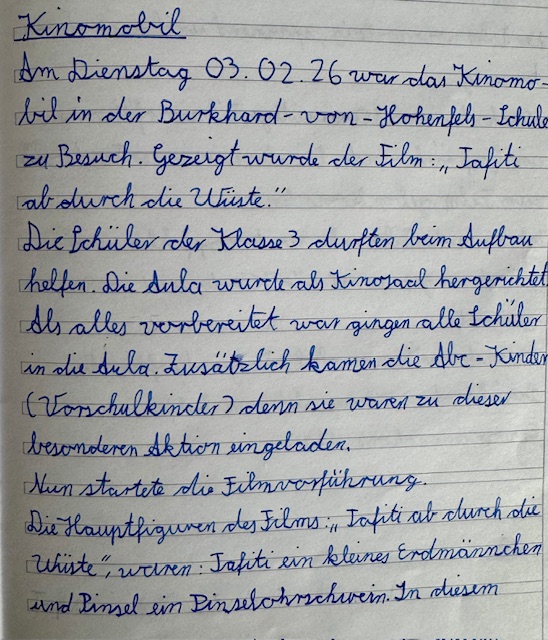 Kinomobil
Am Dienstag 03.02.26 war das Kinomo-
bil in der Burkhard-von-Hohenfels-Schule
zu Besuch. Gezeigt wurde der Film: „Tafiti
ab durch die Wüste."
Die Schüler der Klasse 3 durften beim Aufbau
helfen. Die Aula wurde als Kinosaal hergerichtet
Als alles vorbereitet war gingen alle Schüler
in die Aula. Zusätzlich kamen die Abc-Kinder
(Vorschulkinder) denn sie waren zu dieser
besonderen Aktion eingeladen.
Nun startete die Filmvorführung.
Die Hauptfiguren des Films: „Tafiti ab durch die
Wüste", waren: Tafiti ein kleines Erdmännchen
und Pinsel ein Pinselohrschwein. In diesem